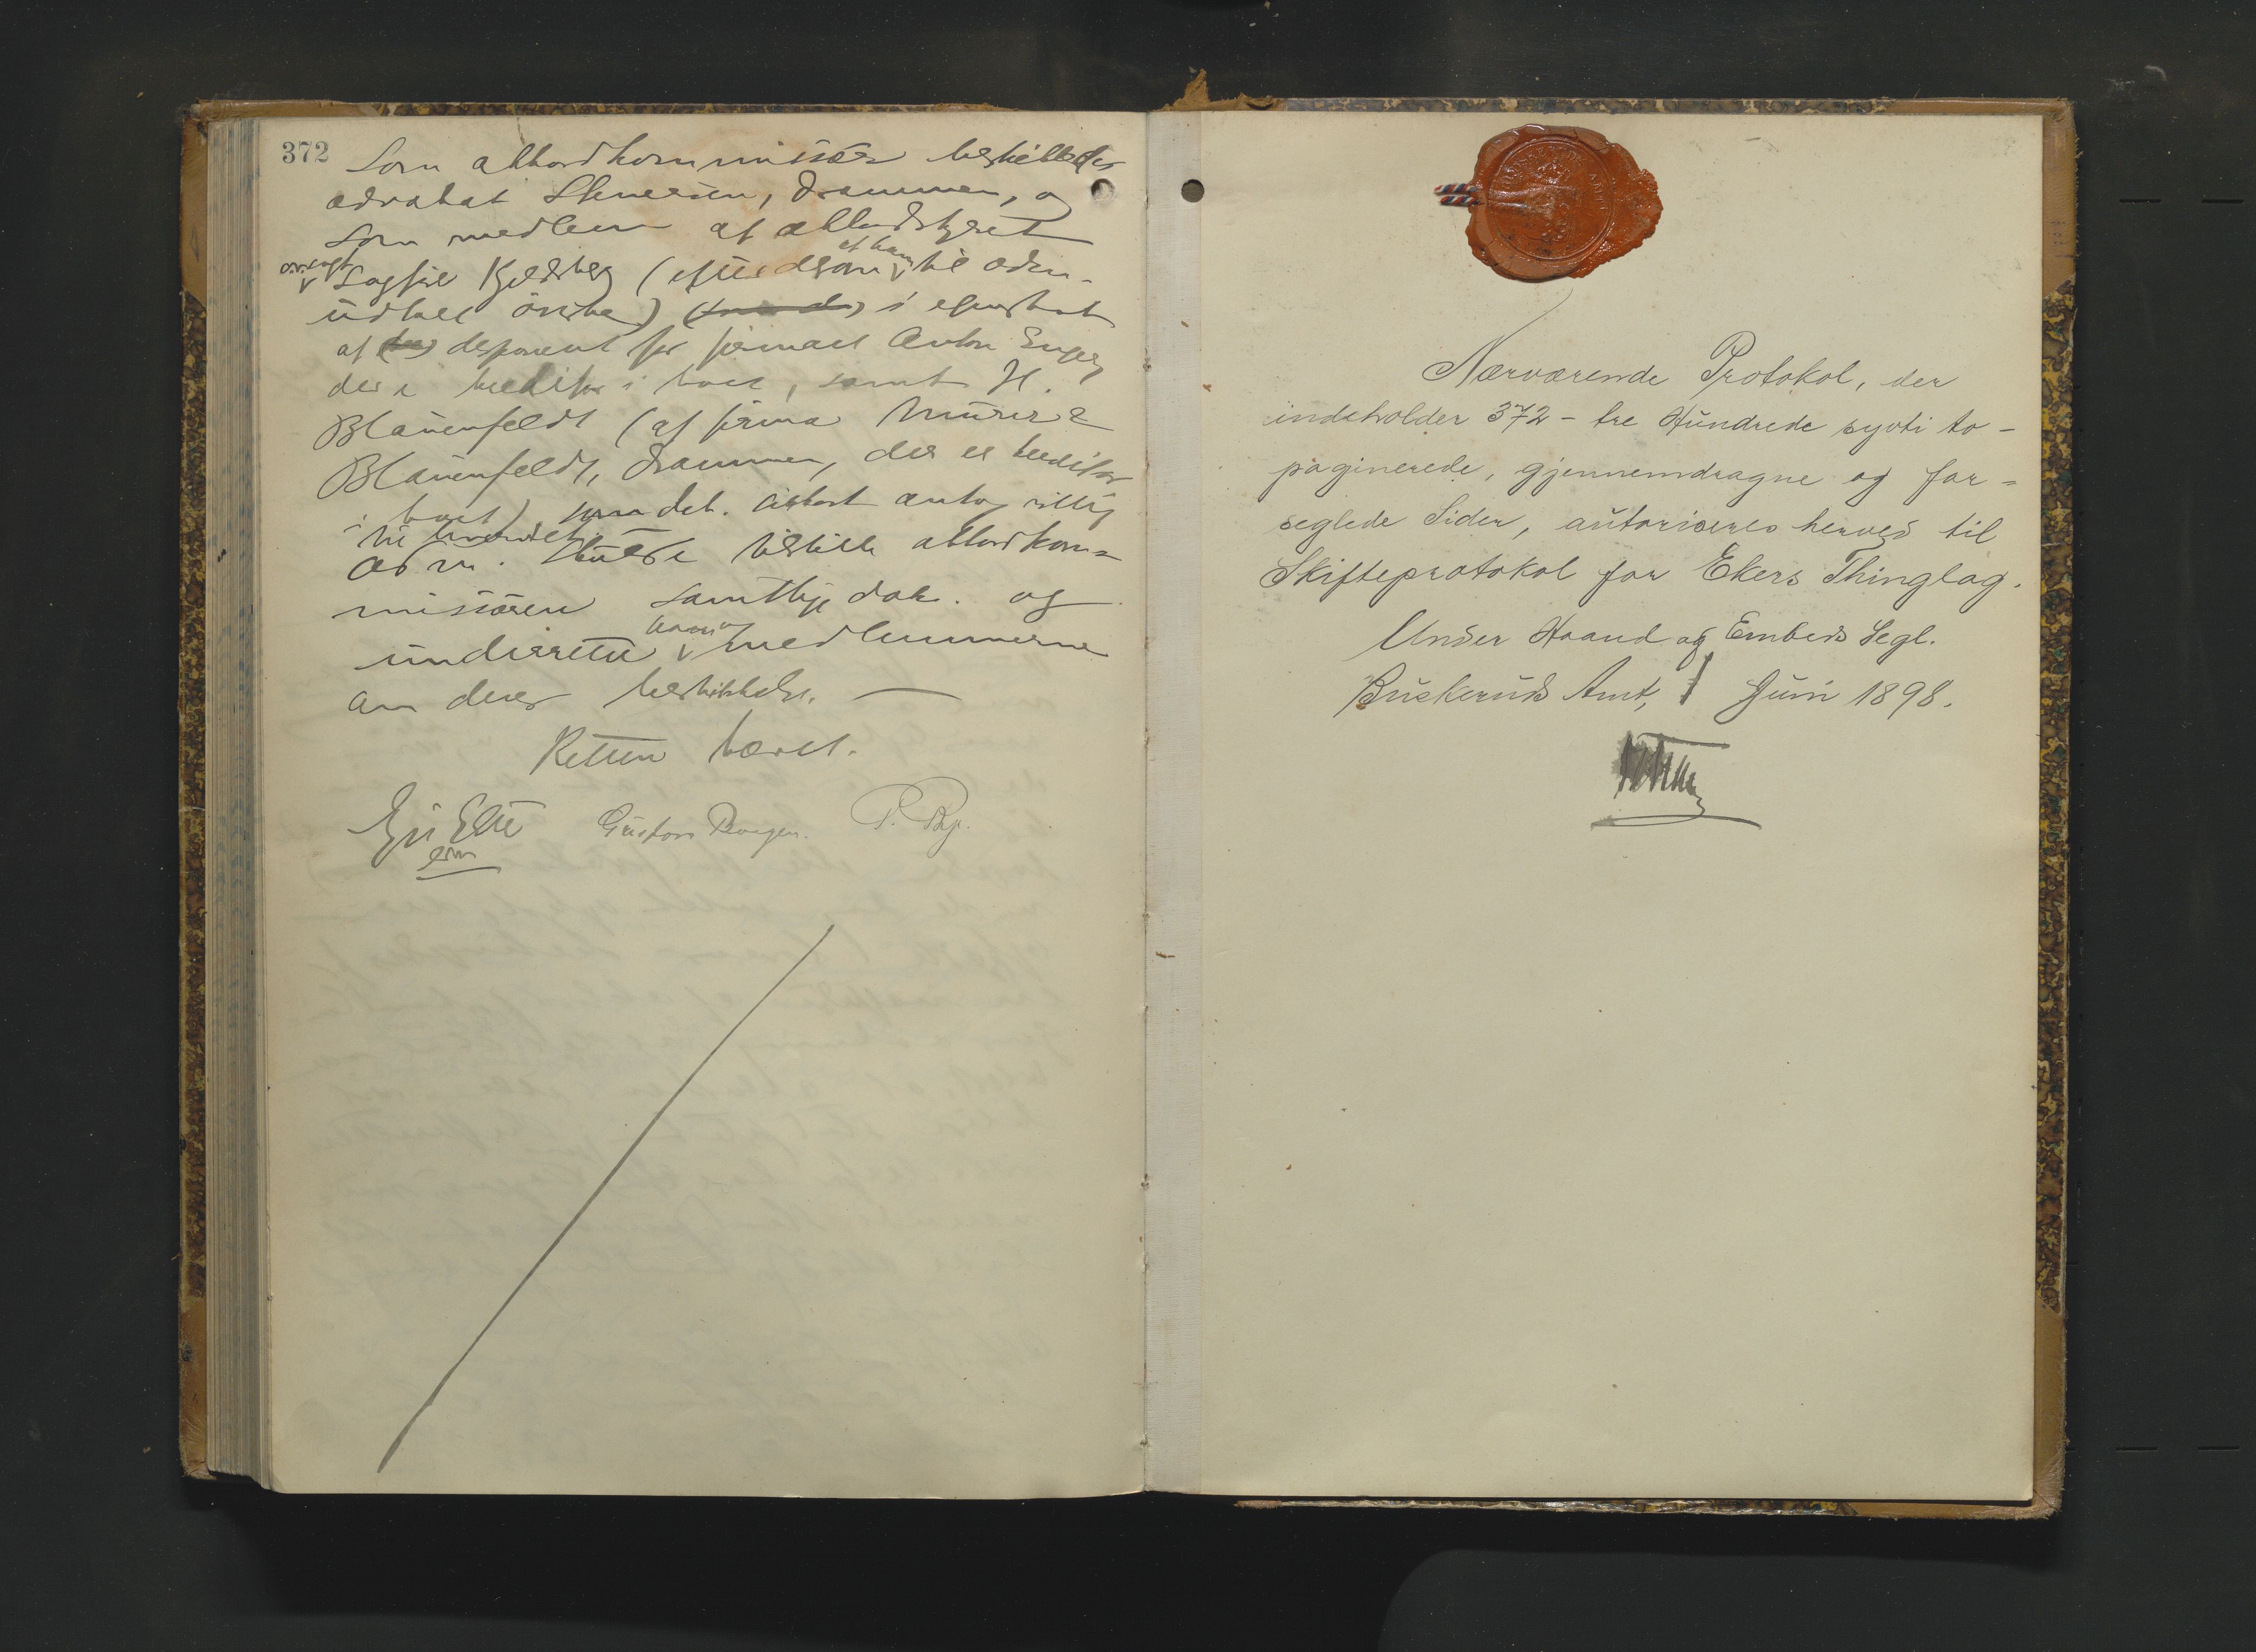 372
Som akkordkommissær beskikkedes
advokat Stenersen, Drammen, og
som medlem af akkordstyret
Sagfør Kjeldsberg (efter derom af ham til adm.
udtalt ønske) i
af disponent for firmaet Anton Enger
der e kreditor i boet, samt H.
Blauenfeldt (af firma Murer &
Blauenfeldt, Drammen, der er kreditor
i boet) som det.
adm. tilstille akkordkom=
missæren samtlige dok. og
underrette ham og medlemmerne
om deres beskikkelse. —
Retten hævet.
Gustav Borgen. P.
Nærværende Protokol, der
indeholder 372 - tre Hundrede sytti to -
paginerede, gjennemdragne og for=
seglede Sider, autoriseres herved til
Skifteprotokol for Ekers Thinglag.
Under Haand og Embeds Segl.
Buskeruds Amt, 1 Juni 1898.